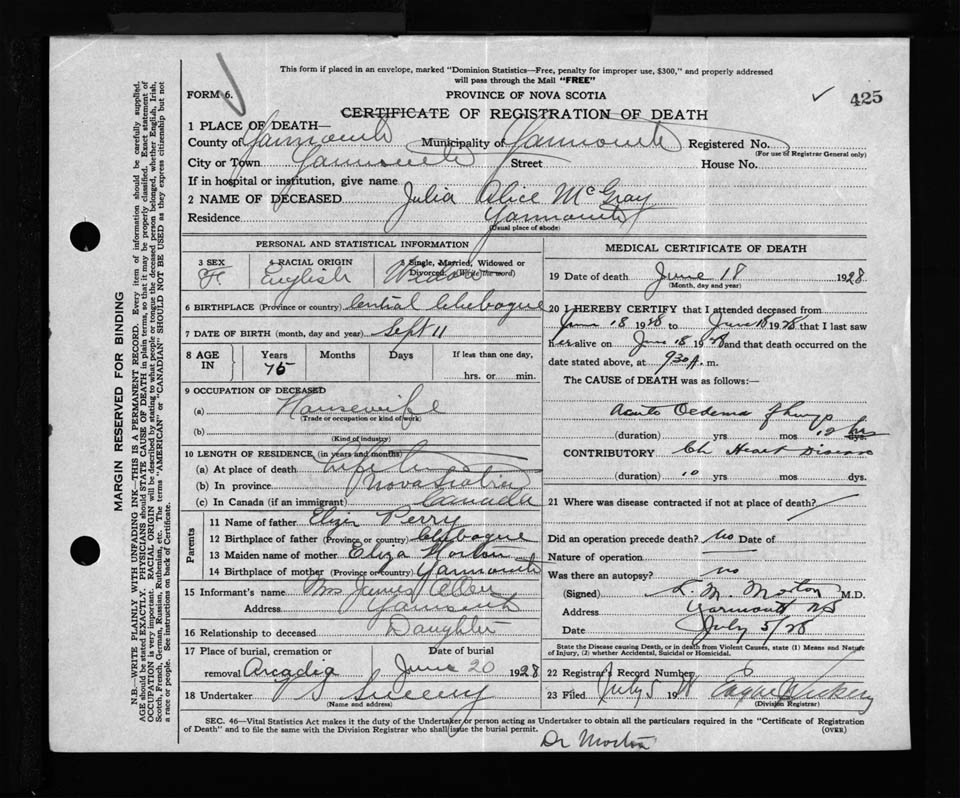 This form if placed in an envelope, marked "Dominion Statistics—Free, penalty for improper use, $300," and properly addressed
will pass through the Mail "FREE"
FORM 6.
PROVINCE OF NOVA SCOTIA
425
CERTIFICATE OF REGISTRATION OF DEATH
1 PLACE OF DEATH—
County of Yarmouth Municipality of Yarmouth Registered No.
(For use of Registrar General only)
City or Town Yarmouth Street House No.
If in hospital or institution, give name
2 NAME OF DECEASED Julia Alice McGray
Residence Yarmouth
(Usual place of abode)
PERSONAL AND STATISTICAL INFORMATION
3 SEX 4 RACIAL ORIGIN 5 Single, Married, Widowed or Divorced (write the word)
F. English Widow
6 BIRTHPLACE (Province or country) Central Chebogue
7 DATE OF BIRTH (month, day and year) Sept 11
8 AGE IN Years Months Days If less than one day,
75 hrs. or min.
9 OCCUPATION OF DECEASED
(a) Housewife
(Trade or occupation or kind of work)
(b)
(Kind of industry)
10 LENGTH OF RESIDENCE (in years and months)
(a) At place of death Life time
(b) In province Nova Scotia
(c) In Canada (if an immigrant) Canada
Parents
11 Name of father Perry
12 Birthplace of father (Province or country) Chebogue
13 Maiden name of mother Eliza Horton
14 Birthplace of mother (Province or country) Yarmouth
15 Informant's name Mrs James Allen
Address Yarmouth
16 Relationship to deceased Daughter
17 Place of burial, cremation or removal Arcadia
Date of burial June 20 1928
18 Undertaker Sweeny
(Name and address)
MEDICAL CERTIFICATE OF DEATH
19 Date of death June 18 1928
(Month, day and year)
20 I HEREBY CERTIFY that I attended deceased from
June 18 1928 to June 18 1928 that I last saw
her alive on June 18 1928 and that death occurred on the
date stated above, at 930 A. m.
The CAUSE of DEATH was as follows:
Acute Oedema of lungs
(duration) yrs mos 12 hrs dys.
CONTRIBUTORY Ch Heart Disease
(duration) 10 yrs mos dys.
21 Where was disease contracted if not at place of death?
Did an operation precede death? no Date of
Nature of operation
Was there an autopsy? no
(Signed) L. M. Morton M.D.
Address Yarmouth NS
Date July 5/28
State the Disease causing Death, or in death from Violent Causes, state (1) Means and Nature
of Injury, (2) whether Accidental, Suicidal or Homicidal.
22 Registrar's Record Number
23 Filed July 5 1928
(Division Registrar)
SEC. 46—Vital Statistics Act makes it the duty of the Undertaker or person acting as Undertaker to obtain all the particulars required in the "Certificate of Registration
of Death" and to file the same with the Division Registrar who shall issue the burial permit.
(OVER)
Dr Morton
MARGIN RESERVED FOR BINDING
N.B.—WRITE PLAINLY WITH UNFADING INK—THIS IS A PERMANENT RECORD. Every item of information should be carefully supplied.
AGE should be stated EXACTLY. PHYSICIANS should STATE CAUSE OF DEATH in plain terms, so that it may be properly classified. Exact statement of
OCCUPATION is very important. RACIAL ORIGIN will be described by stating to what people or tongue the deceased person belonged, whether English, Irish,
Scotch, French, German, Russian, Ruthenian, etc. The terms "AMERICAN" or "CANADIAN" SHOULD NOT BE USED as they express citizenship but not
a race or people. See instructions on back of Certificate.